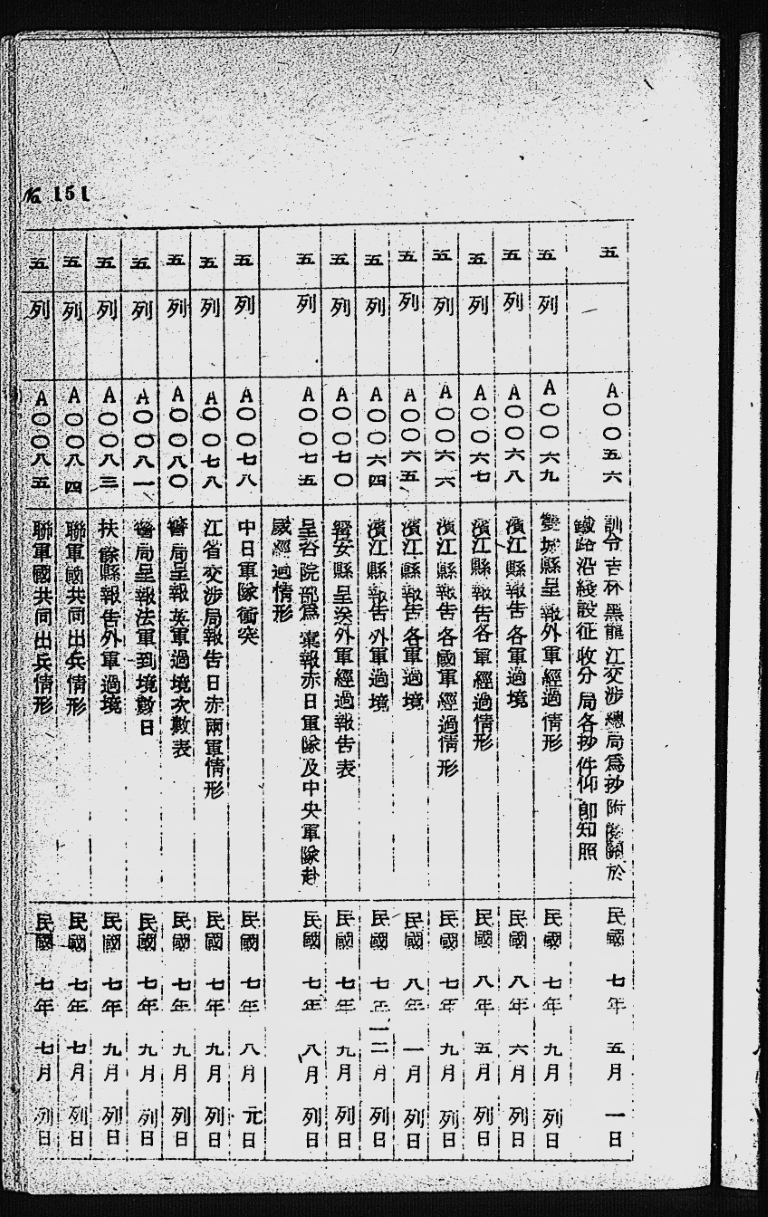 № 151
五 一 A〇〇五六 訓令吉林黑龍江交涉總局爲抄附 於
鐵路沿綫設征收分局各抄件仰卽知照 民國 七年 五月 一日
五 列 A〇〇六九 雙城縣呈報外軍經過情形 民國 七年 九月 列日
五 列 A〇〇六八 濱江縣報告各軍過境 民國 八年 六月 列日
五 列 A〇〇六七 濱江縣報告各軍經過情形 民國 八年 五月 列日
五 列 A〇〇六六 濱江縣報告各國軍經過情形 民國 七年 九月 列日
五 列 A〇〇六五 濱江縣報告各軍過境 民國 八年 一月 列日
五 列 A〇〇六四 濱江縣報告外軍過境 民國 七年 一二月 列日
五 列 A〇〇七〇 寗安縣呈送外軍經過報告表 民國 七年 九月 列日
五 列 A〇〇七五 呈咨院部爲彙報赤日軍隊及中央軍隊赴
崴經過情形 民國 七年 八月 列日
五 列 A〇〇七八 中日軍隊衝突 民國 七年 八月 元日
五 列 A〇〇七八 江省交涉局報告日赤兩軍情形 民國 七年 九月 列日
五 列 A〇〇八〇 警局呈報英軍過境次數表 民國 七年 九月 列日
五 列 A〇〇八一 警局呈報法軍到境數日 民國 七年 九月 列日
五 列 A〇〇八三 扶餘縣報告外軍過境 民國 七年 九月 列日
五 列 A〇〇八四 聯軍國共同出兵情形 民國 七年 七月 列日
五 列 A〇〇八五 聯軍國共同出兵情形 民國 七年 七月 列日